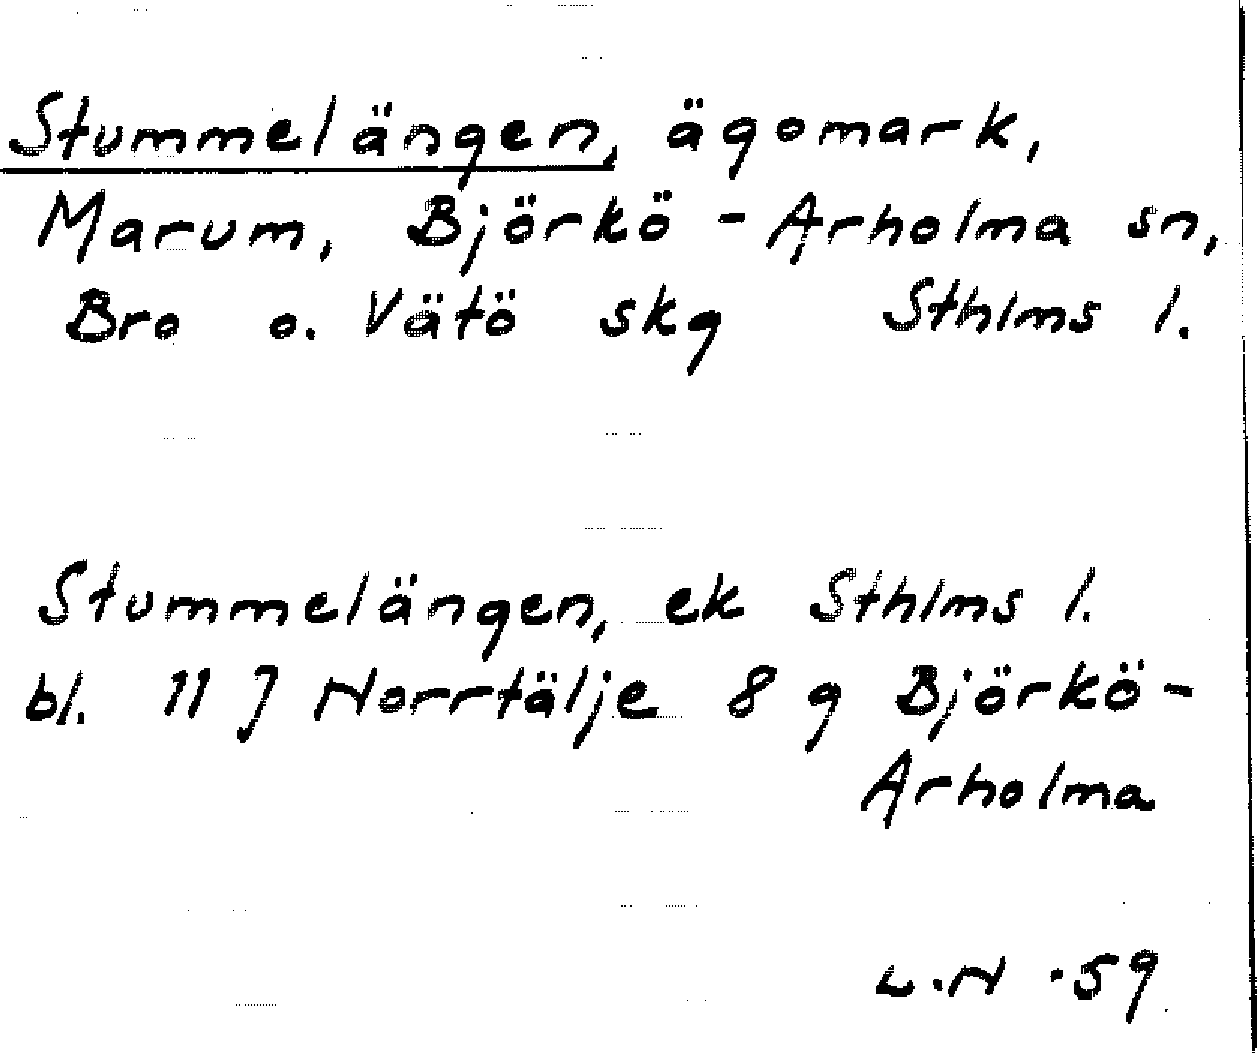 Stummelängen, ägomark,
Marum, Björkö - Arholma sn,
Bro o. Vätö skg Sthlms l.
Stummelängen, ek Sthlms l.
bl. 11 J Norrtälje 8 g Björkö-
Arholma
L.N -59